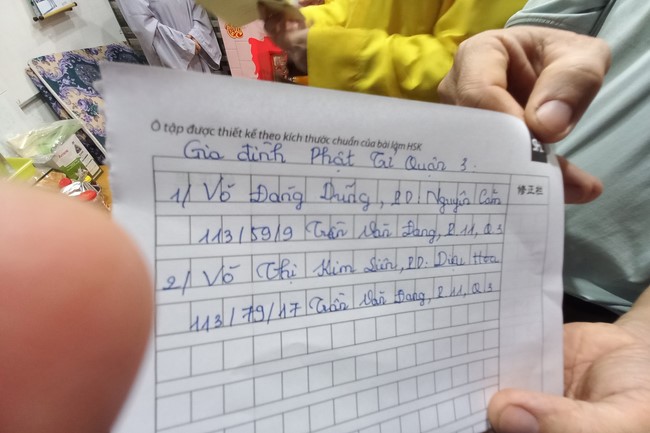 Ô tập được thiết kế theo kích thước chuẩn của bài làm HSK
Gia đình Phật Tử Quận 3.
1/ Võ Đăng Dũng, P.D: Nguyên Cẩm
113/59/9 Trần Văn Đang, P.11, Q3
2/ Võ Thị Kim Liên, P.D: Diệu Hoa
113/79/17 Trần Văn Đang, P.11, Q3
修正栏